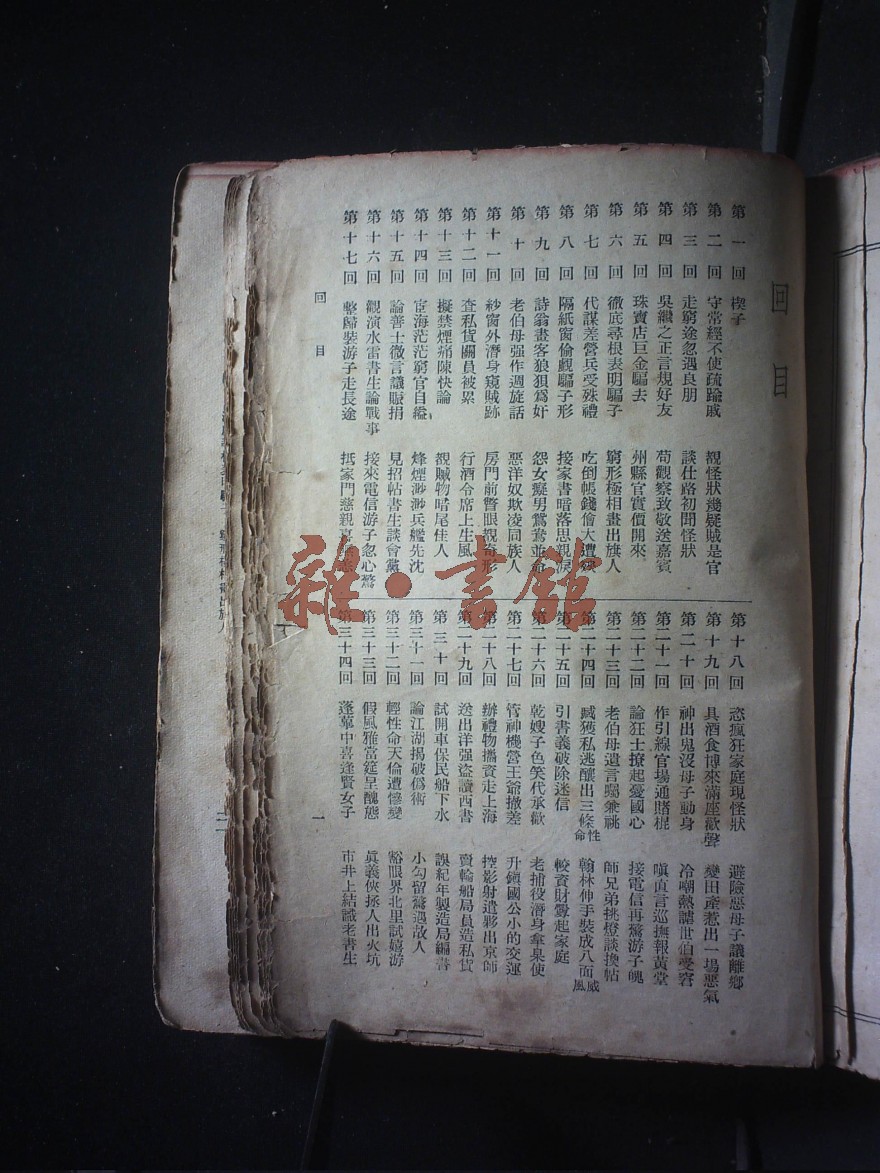 回目
第一回 楔子
第二回 守常經不使疏踰戚 覩怪狀幾疑賊是官
第三回 走窮途忽遇良朋 談仕路初聞怪狀
第四回 吳繼之正言規好友 苟觀察致敬送嘉賓
第五回 珠寶店巨金騙去 州縣官實價開來
第六回 徹底尋根表明騙子 窮形極相畫出旗人
第七回 代謀差營兵受殊禮 吃倒帳錢儈大遭殃
第八回 隔紙窗偷覷騙子形 接家書暗落思親淚
第九回 詩翁畫客狼狽爲奸 怨女癡男鴛鴦並命
第十回 老伯母强作週旋話 惡洋奴欺凌同族人
第十一回 紗窗外潛身窺賊跡 房門前瞥眼覩奇形
第十二回 查私貨關員被累 行酒令席上生風
第十三回 擬禁煙痛陳快論 覩贓物暗尾佳人
第十四回 宦海茫茫窮官自縊 烽煙渺渺兵艦先沈
第十五回 論善士微言議賑捐 見招帖書生談會黨
第十六回 觀演水雷書生論戰事 接來電信游子忽心驚
第十七回 整歸裝游子走長途 抵家門慈親喜
第十八回 恣瘋狂家庭現怪狀 避險惡母子議離鄉
第十九回 具酒食博來滿座歡聲 變田產惹出一場惡氣
第二十回 神出鬼沒母子動身 冷嘲熱謔世伯受窘
第二十一回 作引線官場通賭棍 嗔直言巡撫報黃堂
第二十二回 論狂士撩起憂國心 接電信再驚游子魄
第二十三回 老伯母遺言囑兼祧 師兄弟挑燈談換帖
第二十四回 臧獲私逃釀出三條性命 翰林伸手裝成八面威風
第二十五回 引書義破除迷信 較資財釁起家庭
第二十六回 乾嫂子色笑代承歡 老捕役潛身拿臬使
第二十七回 管神機營王爺撤差 升鎭國公小的交運
第二十八回 辦禮物攜資走上海 控影射遣夥出京師
第二十九回 送出洋强盜讀西書 賣輪船局員造私貨
第三十回 試開車保民船下水 誤紀年製造局編書
第三十一回 論江湖揭破僞術 小勾留驚遇故人
第三十二回 輕性命天倫遭慘變 豁眼界北里試嬉游
第三十三回 假風雅當筵呈醜態 眞義俠拯人出火坑
第三十四回 蓬蓽中喜逢賢女子 市井上結識老書生
回目
一
雜·書館